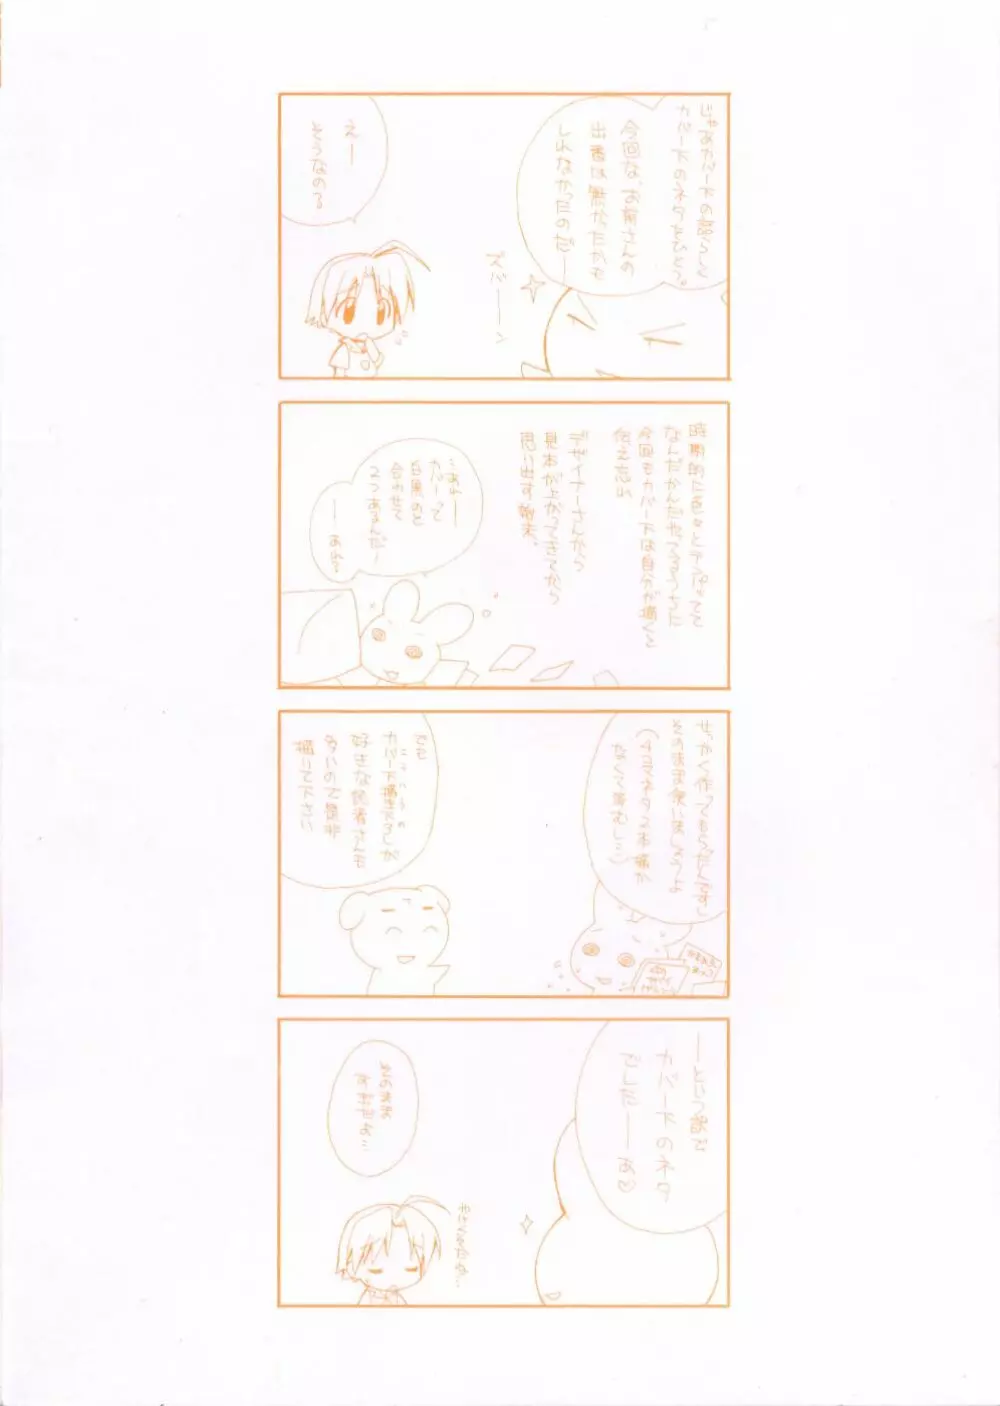 じゃあカバー下の話らしく
カバー下のネタをひとつ。
今回な、お前さんの
出番は無かったかも
しれなかったのだー
ズバーーン
えー
そうなの?
時期的に色々とテンパってて
なんだかんだやってるうちに
今回もカバー下は自分が描くと
伝え忘れ
デザイナーさんから
見本が上がってきてから
思い出す始末。
…あれー
カバーって
白黒のと
合わせて
2つあるんだー
ーあれ?
せっかく作ってもらったんですし
そのまま使いましょうよ
(4コマネタ2本描か
なくて済むし…)
でも
こういうの
カバー下描き下ろしが
好きな読者さんも
多いので是非
描いて下さい
ーという訳で
カバー下のネタ
でしたーーあ♡
そのまま
すぎだよ…